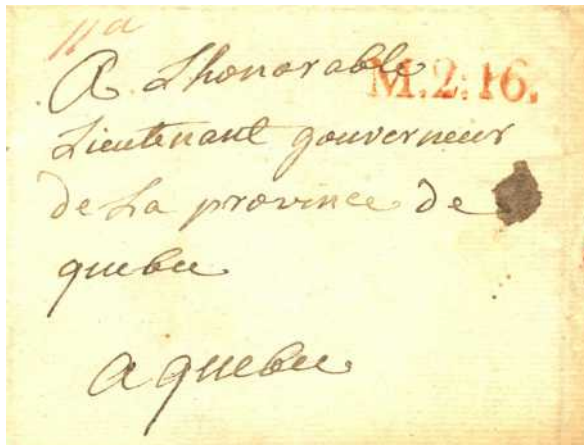 11d
A Lhonorable
M.2:16.
Lieutenant gouverneur
de La province de
quebec
a quebec